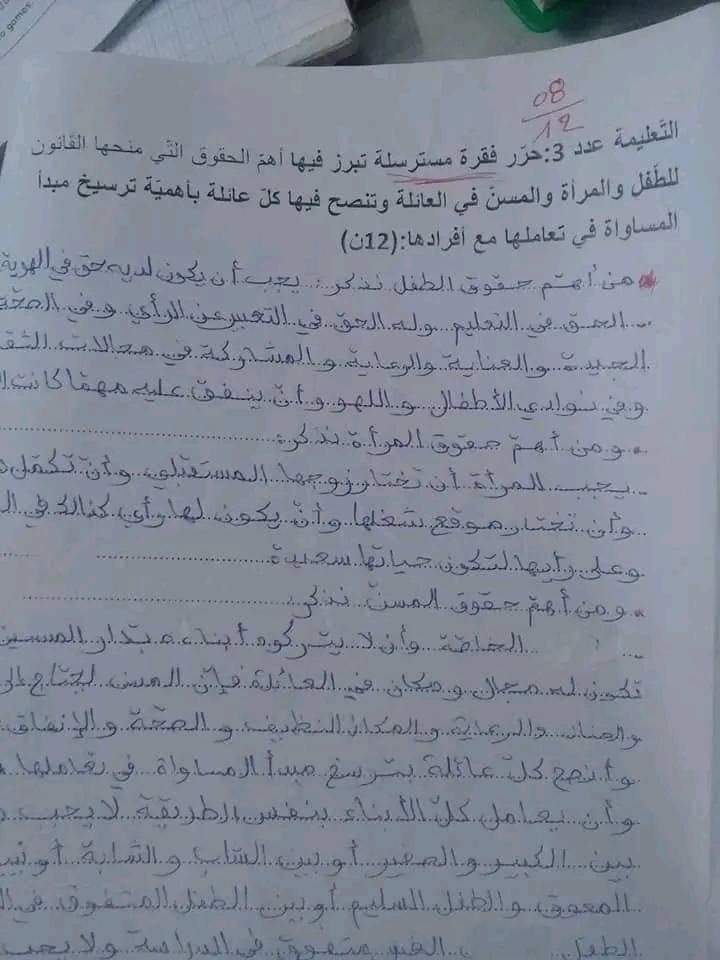 games.
08
12
التعليمة عدد 3: حرّر فقرة مسترسلة تبرز فيها أهمّ الحقوق التّي منحها القانون
للطّفل والمرأة والمسنّ في العائلة وتنصح فيها كلّ عائلة بأهميّة ترسيخ مبدأ
المساواة في تعاملها مع أفرادها: (12ن)
من أهمّ حقوق الطفل نذكر: يجب أن يكون لديه حق في الهوية
الحق في التعليم وله الحق في التعبير عن الرأي وفي الصحّة
الجيدة والعناية والرعاية والمشاركة في مجالات
وفي نوادي الأطفال واللهو وأنّ ينفق عليه مهمّا كانت
ومن أهمّ حقوق المرأة نذكر:
يجب المرأة أن تختار زوجها المستقبلي وأنّ تكمّل
وأن تختار موقع شغلها وأنّ يكون لها رأي كذالك في
وعلى رأيها لتكون حياتها سعيدة
ومن أهمّ حقوق المسنّ نذكر:
الخاصّة وأن لا يتركوه أبناءه بدار المسنين
تكون له مجال ومكان في العائلة فإنّ المسن يحتاج إلى
والحنان والرعاية والمكان النظيف والصحّة والإنفاق
وأنصح كلّ عائلة بترسخ مبدأ المساواة في تعاملها
وأن يعامل كلّ الأبناء بنفس الطريقة لا يجب
بين الكبير والصغير أو بين الشاب والشابة أو بين
المعوق والطفل السليم أو بين الطفل المتفوق في
الطفل الغير متفوق في الدراسة ولا يجب